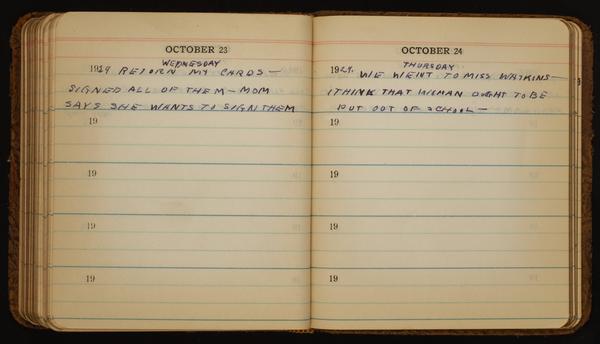 OCTOBER 23
WEDNESDAY
1929 RETURN MY CARDS—
SIGNED ALL OF THEM — MOM
SAYS SHE WANTS TO SIGN THEM
19
19
19
19
OCTOBER 24
THURSDAY
1929. WE WENT TO MISS WATKINS—
I THINK THAT WOMAN OUGHT TO BE
PUT OUT OF SCHOOL—
19
19
19
19